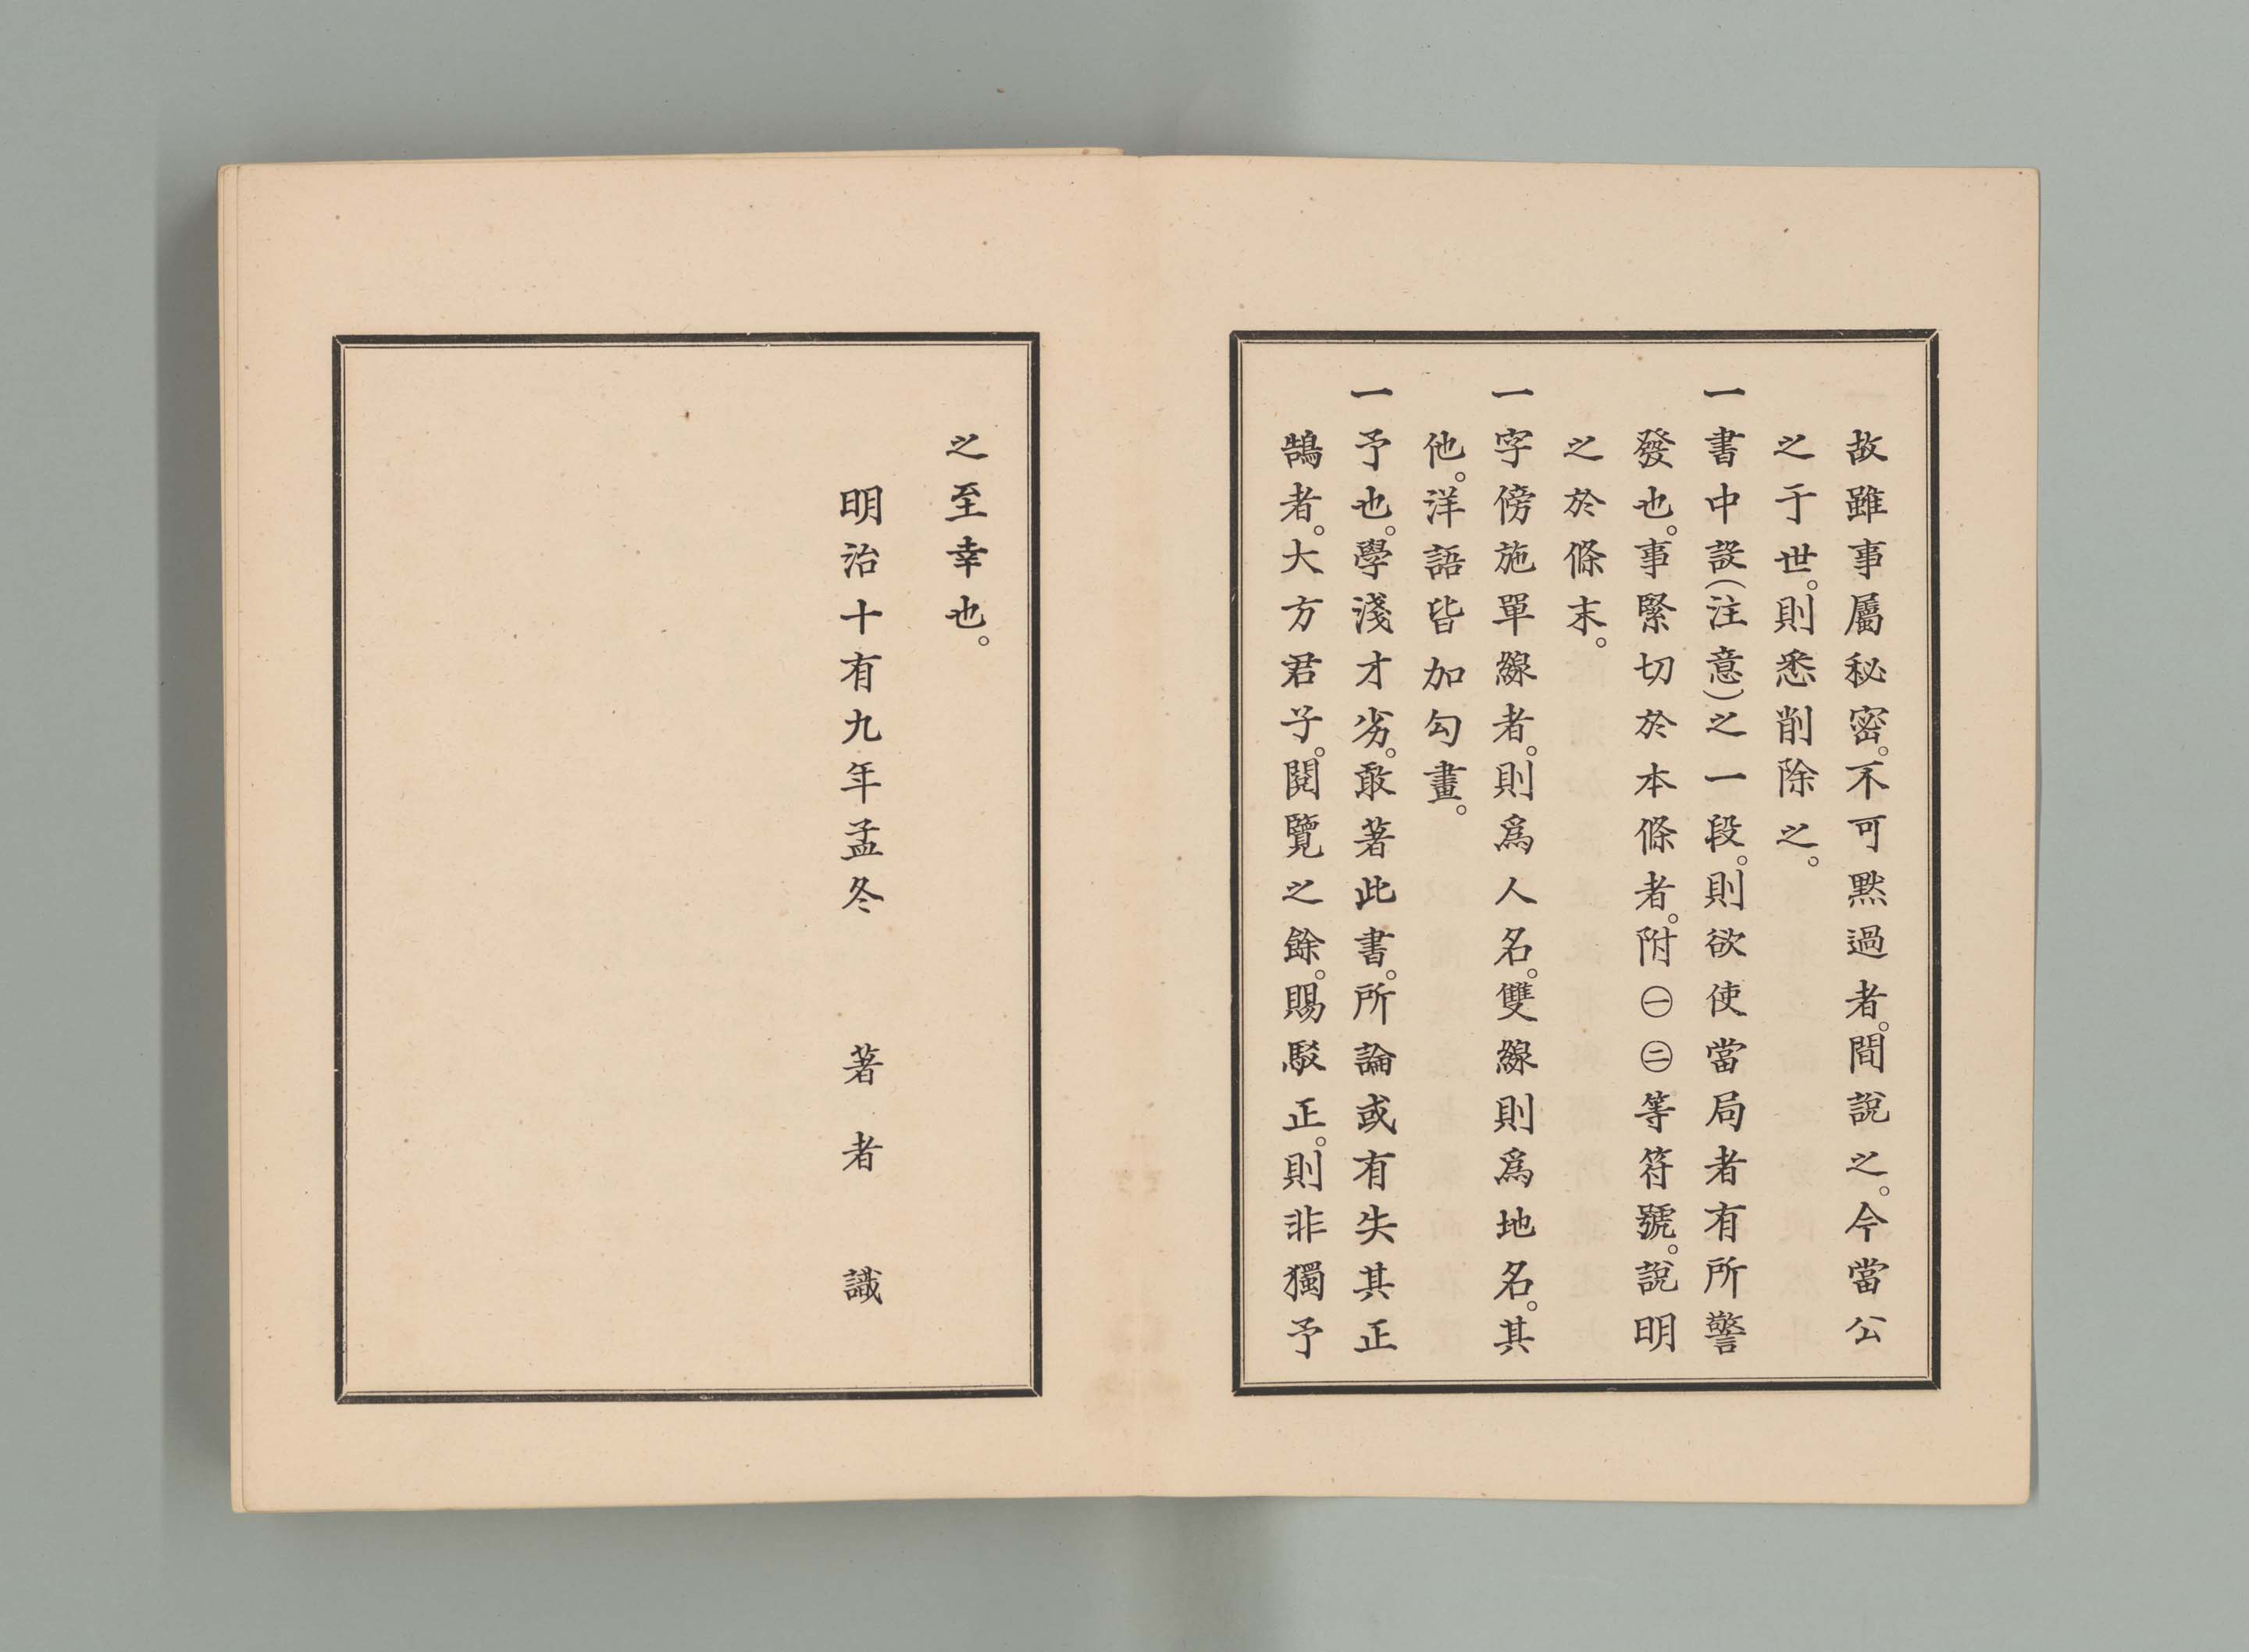 故雖事屬秘密。不可默過者。間說之。今當公
之于世。則悉削除之。
一書中設(注意)之一段。則欲使當局者有所警
發也。事緊切於本條者。附㊀㊁等符號。說明
之於條末。
一字傍施單線者。則爲人名。雙線則爲地名。其
他。洋語皆加勾畫。
一予也。學淺才劣。敢著此書。所論或有失其正
鵠者。大方君子。閱覽之餘。賜駁正。則非獨予
之至幸也。
明治十有九年孟冬 著者 識